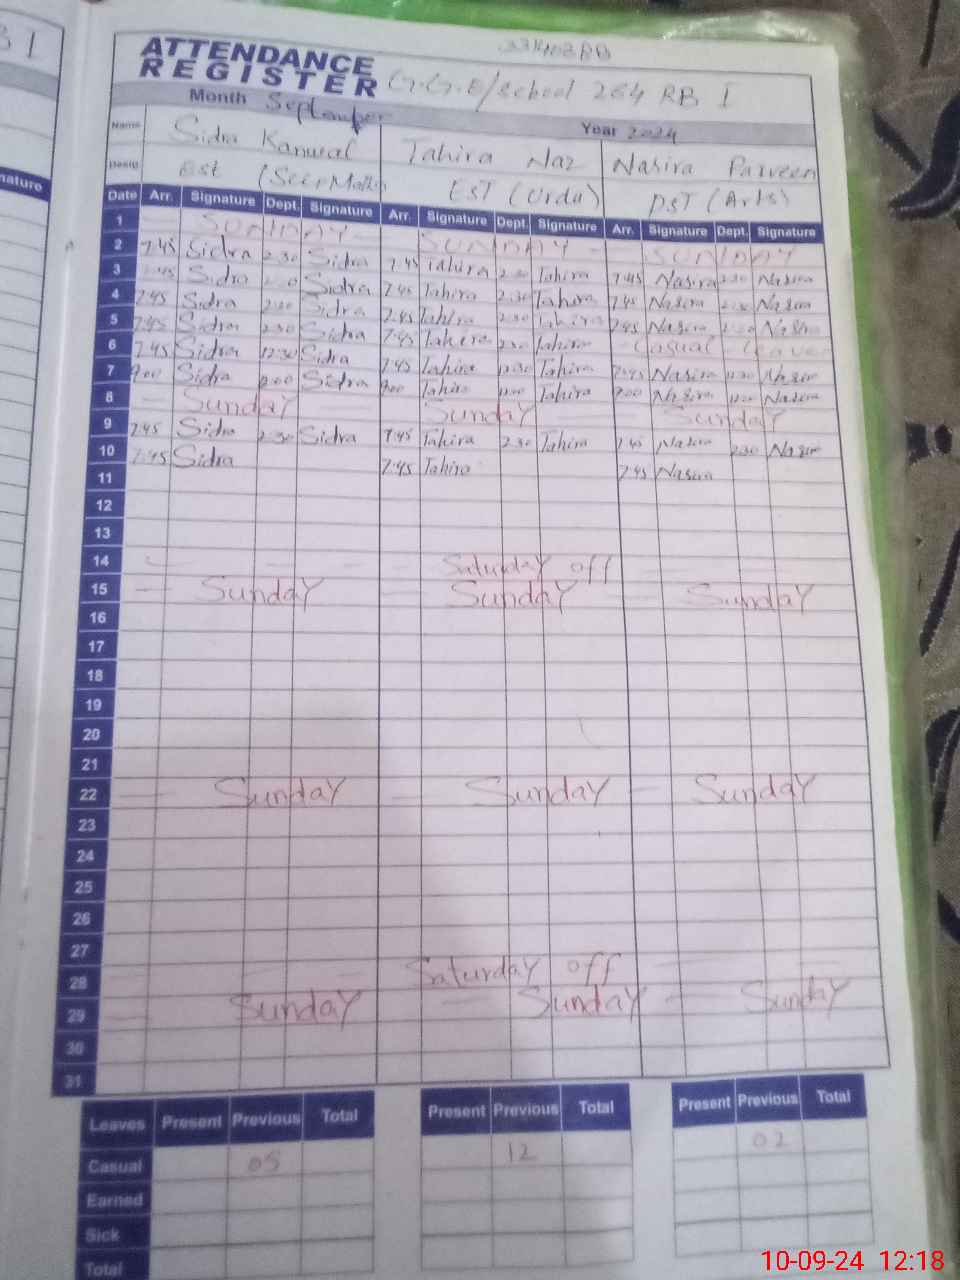 ATTENDANCE
REGISTER G.G.E/school 264 RB I
Month September Year 2024
Name Sidra Kanwal Tahira Naz Nasira Parveen
Desig Est EST (Urdu) PST (Arts)
Date Arr. Signature Dept. Signature Arr. Signature Dept. Signature Arr. Signature Dept. Signature
1 SUNDAY SUNDAY SUNDAY
2 7:45 Sidra 2:30 Sidra 7:45 Tahira Tahira 7:45 Nasira 2:30 Nasira
3 7:45 Sidra Sidra 7:45 Tahira 2:30 Tahira 7:45 Nasira 2:30 Nasira
4 7:45 Sidra Sidra 7:45 Tahira 2:30 Tahira 7:45 Nasira Nasira
5 7:45 Sidra 2:30 Sidra 7:45 Tahira 2:30 Tahira Casual Leave
6 7:45 Sidra 12:30 Sidra 7:45 Tahira 12:30 Tahira 7:45 Nasira 12:30 Nasira
7 9:00 Sidra Sidra 9:00 Tahira Tahira 9:00 Nasira Nasira
8 Sunday Sunday Sunday
9 7:45 Sidra 2:30 Sidra 7:45 Tahira 2:30 Tahira 7:45 Nasira 2:30 Nasira
10 7:45 Sidra 7:45 Tahira 7:45 Nasira
11
12
13
14 Saturday off
15 Sunday Sunday Sunday
16
17
18
19
20
21
22 Sunday Sunday Sunday
23
24
25
26
27
28 Saturday off
29 Sunday Sunday Sunday
30
31
Leaves Present Previous Total Present Previous Total Present Previous Total
Casual 05 12 02
Earned
Sick
Total
10-09-24 12:18